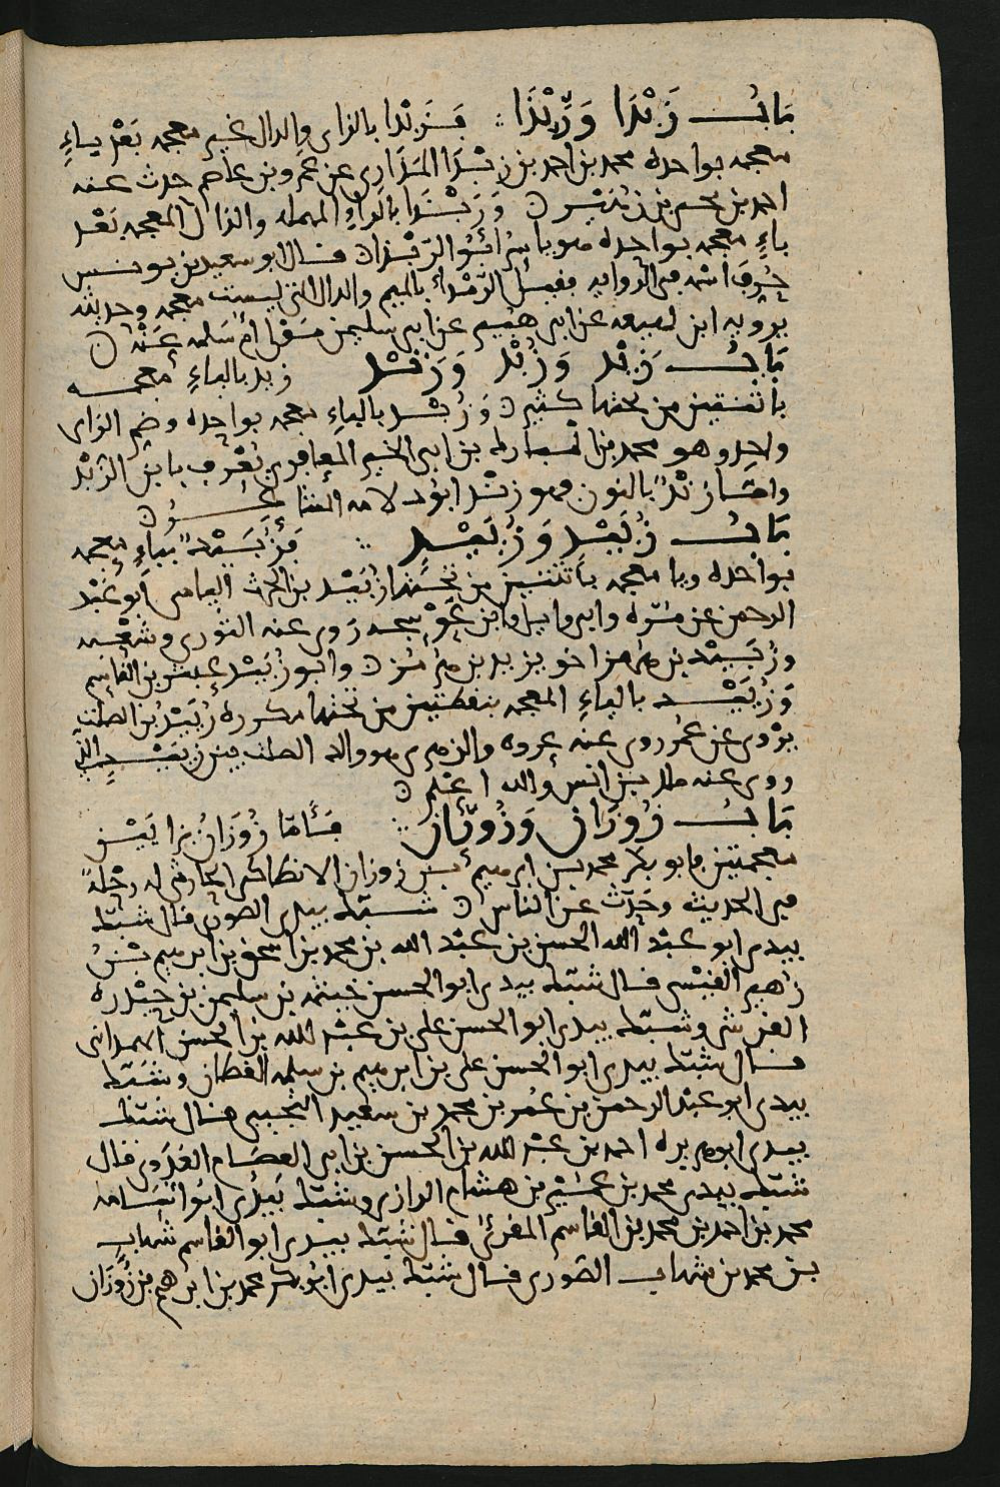 باب زَبْدَا وَرَبْذَا فزبدا بالزاى والدال غير معجمه بَعْد باءٍ
معجمه بواحده محمد بن احمد بن زبدا المَذَارى عن عمرو بن عاصم حدث عنه
احمد بن يحيى بن زهير وَرَبْذَا بالراء المهمله والذال المعجمه بَعْد
باءٍ معجمه بواحده فهو ياسر ابُو الرَبْذا قال ابو سعيد بن يونس
حُرِفَ اسمه فى الروايه فقيل الرَمْدأ بالميم والدال التى ليست معجمه وحديثه
يرويه ابن لهيعه عن ابن هبيره عن ابى سليمن مَوْلى ام سَلمه عَنْه
باب زَيْد وَزُبْد وَزَنْد زيد بالياءِ معجمه
باثنتين من تحتها كثير وَزُبْد بالباءِ معجمه بواحده وضم الزاى
واحد وهو محمد بن المبارك بن ابى الخير المعافرى يُعْرف بابن الزبْد
وامّا زَنْدٌ بالنون فهو زَنْد ابُو دلامه الشاعر
باب زُبَيْد وَزُيَيْد فَزُبَيْدٌ بباءٍ معجمه
بواحده ويا معجمه باثنتين من تحتها زُبَيْد بن الحرث اليامى ابو عَبْد
الرحمن عن مُرّه وابى وايل وابن عَوْسجه رَوى عنه الثورى وشعْبه
وزُبَيْد بن اخو يزيد بن وابو زُبَيْد عبثر بن القاسم
وَزُيَيْد بالياءِ المعجمه بنقطتين من تحتها مكرره زُيَيْد بن الصلت
يَرْوى عن عُمَر روى عنه عروه والزهرى هو والد الصلت بن زُيَيْد الذى
روى عنه ملك بن انس والله اعلم
باب زُوزَان وَزُورَّان فأمّا زُوزَانُ بزايَيْن
معجمتين فابو بكر محمد بن ابرهيم بن زوزان الانطاكى الحارثى له رحْلة
فى الحديث وحَدّث عن الناس شبّك بيدى الصورى قال شبّك
بيدى ابو عبْد الله الحسن بن عبْد الله بن محمد بن اسحق بن ابرهيم بْن
زهير القيْسى قال شبّك بيدى ابو الحسن خيثمه بن سليمن بن حيْدره
القرشى وشبّك بيدى ابو الحسن على بن عبْد الله بن الحسن الهمدانى
قال شبّك بيدى ابو الحسن على بن ابرهيم بن سلمه القطان وشبّك
بيدى ابو عبْد الرحمن بن عُمَر بن محمد بن سعيد التجيبى قال شبّك
بيدى ابو هريره احمد بن عبْد الله بن الحسن بن ابى العصَام العَدَوى قال
شبّك بيدى محمد بن هشام الرازى وشبّك بيَدى ابُو اسَامه
محمد بن احمد بن محمد بن القاسم المقرئ قال شبّك بيدى ابو القاسم شهاب
بن محمد بن شهاب الصّورى قال شبّك بيدى ابُو بكر محمد بن ابرهيم بن زُوزَان